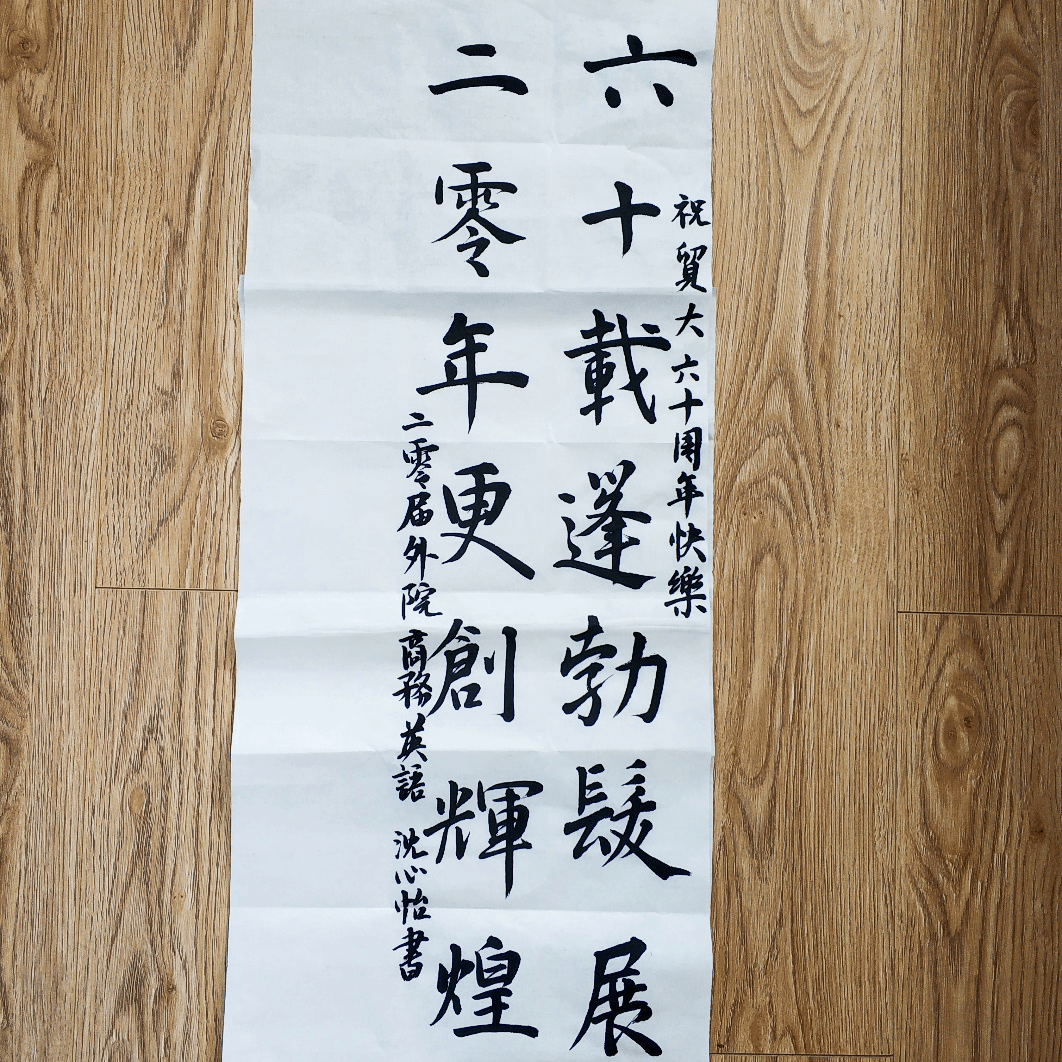 祝贸大六十周年快樂
六十載蓬勃髮展
二零年更創輝煌
二零届外院商務英語 沈心怡書